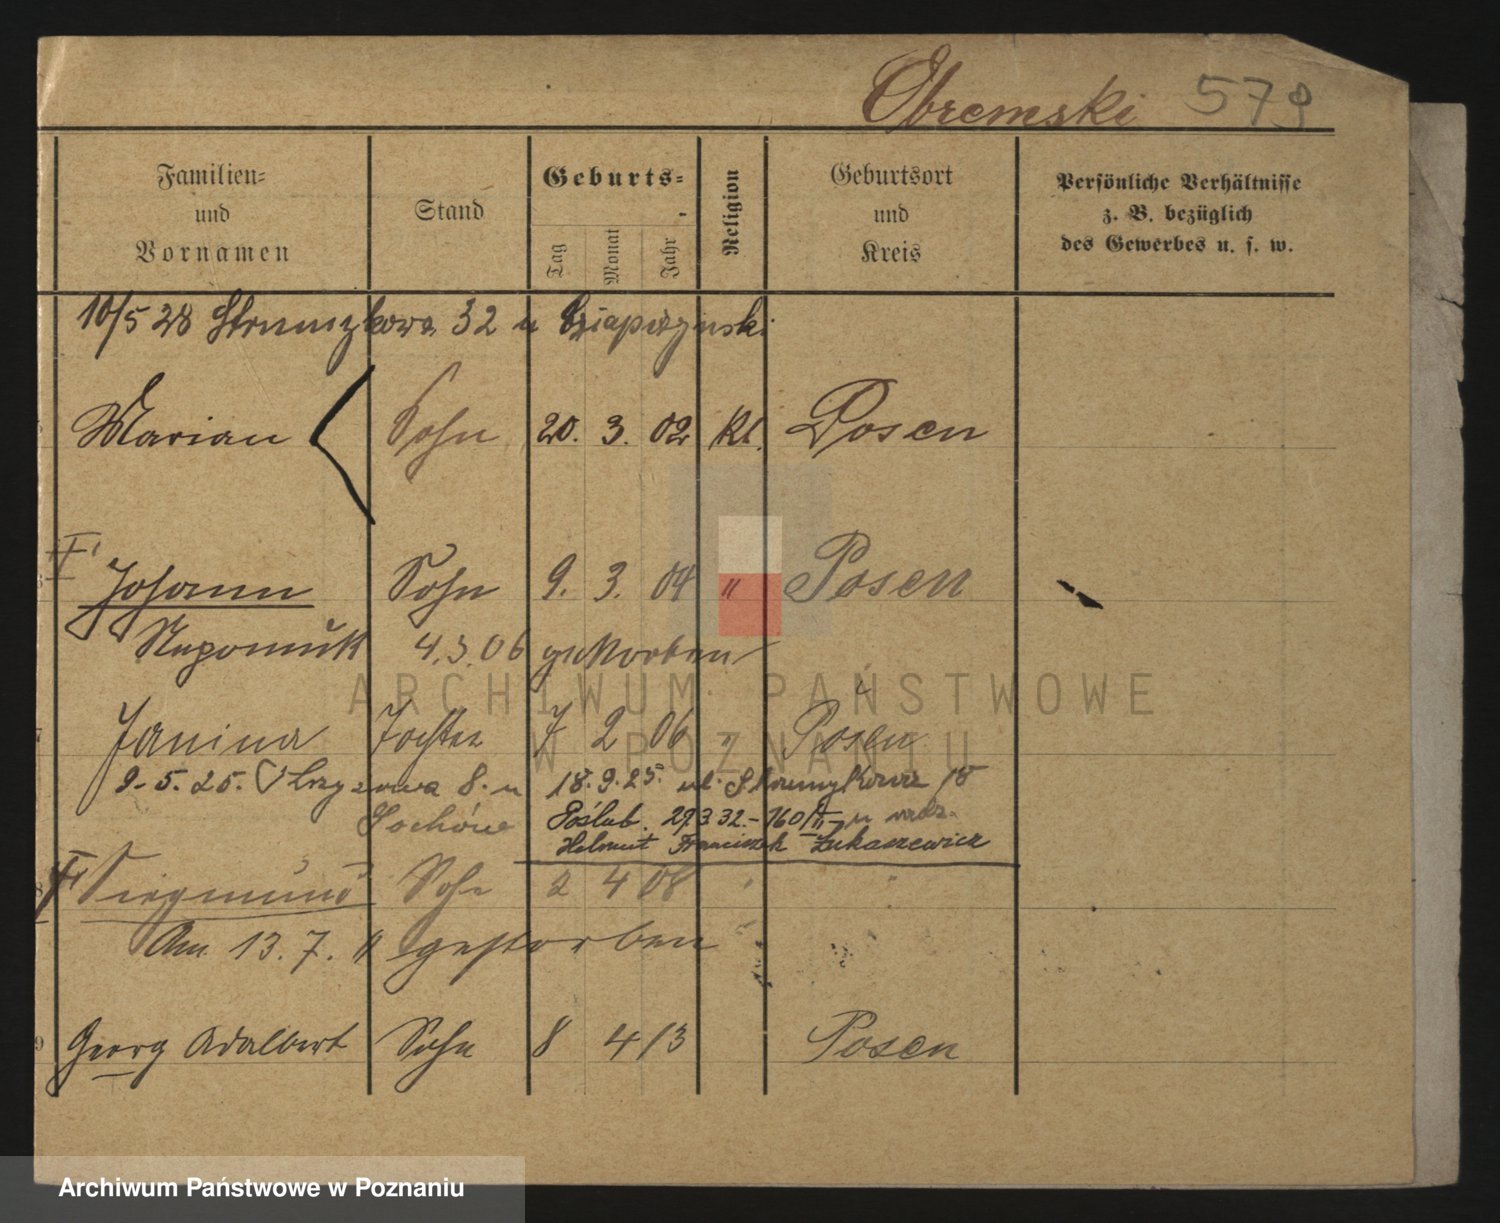 Obremski 579
Familien=
und
Vornamen
Stand
Geburts=
Tag
Monat
Jahr
Religion
Geburtsort
und
Kreis
Persönliche Verhältnisse
z. B. bezüglich
des Gewerbes u. s. w.
10/5 28 32 u
Marian Sohn 20. 3. 02 Kt. Posen
Johann Sohn 9. 3. 04 " Posen
Nepomuk 4.3.06 gestorben
Janina Tochter 7 2 06 " Posen
9.5.25. 8. u 18.9.25. ul. 18
Poślub. 29.3.32.-160/II- u
Helmut Franciszek Łukaszewicz
Siegmund Sohn 2 4 08
Am 13. 7. " gestorben
9 Georg Adalbert Sohn 8 4 13 Posen
ARCHIWUM PAŃSTWOWE
W POZNANIU
Archiwum Państwowe w Poznaniu